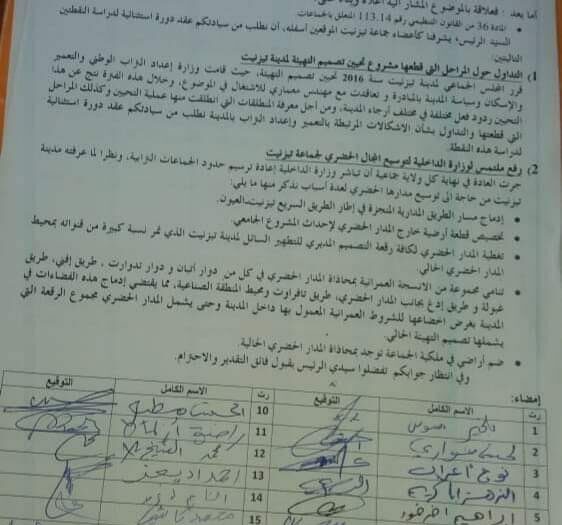 أما بعد، فعلاقة بالموضوع المشار إليه أعلاه وبناء على:
المادة 36 من القانون التنظيمي رقم 113.14 المتعلق بالجماعات
السيد الرئيس، يشرفنا كأعضاء جماعة تيزنيت الموقعين أسفله، أن نطلب من سيادتكم عقد دورة استثنائية لدراسة النقطتين
التاليتين:
1) التداول حول المراحل التي قطعها مشروع تحيين تصميم التهيئة لمدينة تيزنيت
قرر المجلس الجماعي لمدينة تيزنيت سنة 2016 تحيين تصميم التهيئة، حيث قامت وزارة إعداد التراب الوطني والتعمير
والإسكان وسياسة المدينة بالمبادرة و تعاقدت مع مهندس معماري للاشتغال في الموضوع، وخلال هذه الفترة نتج عن هذا
التحيين ردود فعل مختلفة في مختلف أرجاء المدينة، ومن أجل معرفة المنطلقات التي انطلقت منها عملية التحيين وكذلك المراحل
التي قطعتها والتداول بشأن الاشكالات المرتبطة بالتعمير وإعداد التراب بالمدينة نطلب من سيادتكم عقد دورة استثنائية
لدراسة هذه النقطة.
2) رفع ملتمس لوزارة الداخلية لتوسيع المجال الحضري لجماعة تيزنيت
جرت العادة في نهاية كل ولاية جماعية أن تباشر وزارة الداخلية إعادة ترسيم حدود الجماعات الترابية، ونظرا لما عرفته مدينة
تيزنيت من حاجة الى توسيع مدارها الحضري لعدة أسباب نذكر منها ما يلي:
إدماج مسار الطريق المدارية المنجزة في إطار الطريق السريع تيزنيت-العيون.
تخصيص قطعة أرضية خارج المدار الحضري لإحداث المشروع الجامعي.
تغطية المدار الحضري لكافة رقعة التصميم المديري للتطهير السائل لمدينة تيزنيت الذي تمر نسبة كبيرة من قنواته بمحيط
المدار الحضري الحالي.
تنامي مجموعة من الانسجة العمرانية بمحاذاة المدار الحضري في كل من دوار أتبان و دوار تدوارت، طريق إفني، طريق
غبولة و طريق إدغ بجانب المدار الحضري، طريق تافراوت ومحيط المنطقة الصناعية، مما يقتضي إدماج هذه الفضاءات في
المدينة بغرض اخضاعها للشروط العمرانية المعمول بها داخل المدينة وحتى يشمل المدار الحضري مجموع الرقعة التي
يشملها تصميم التهيئة الحالي.
ضم أراضي في ملكية الجماعة توجد بمحاذاة المدار الحضري الحالية.
وفي انتظار جوابكم تفضلوا سيدي الرئيس بقبول فائق التقدير والاحترام.
إمضاء:
رت الاسم الكامل التوقيع رت الاسم الكامل التوقيع
1 10
2 11
3 نوح أعراب 12
4 13
5 ابراهيم 14
15